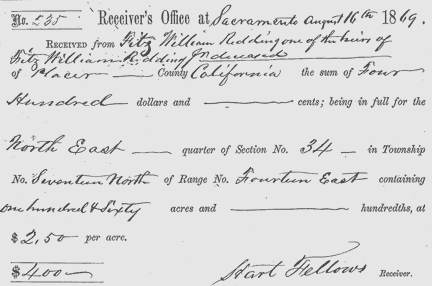 No. 235 Receiver's Office at Sacramento August 16th 1869.
RECEIVED from Fitz William Redding one of the heirs of
Fitz William Redding Jn deceased
of Placer County California the sum of Four
Hundred dollars and cents; being in full for the
North East quarter of Section No. 34 in Township
No. Seventeen North of Range No. Fourteen East containing
one hundred & Sixty acres and hundredths, at
$ 2,50 per acre.
$ 400 Hart Fellows Receiver.